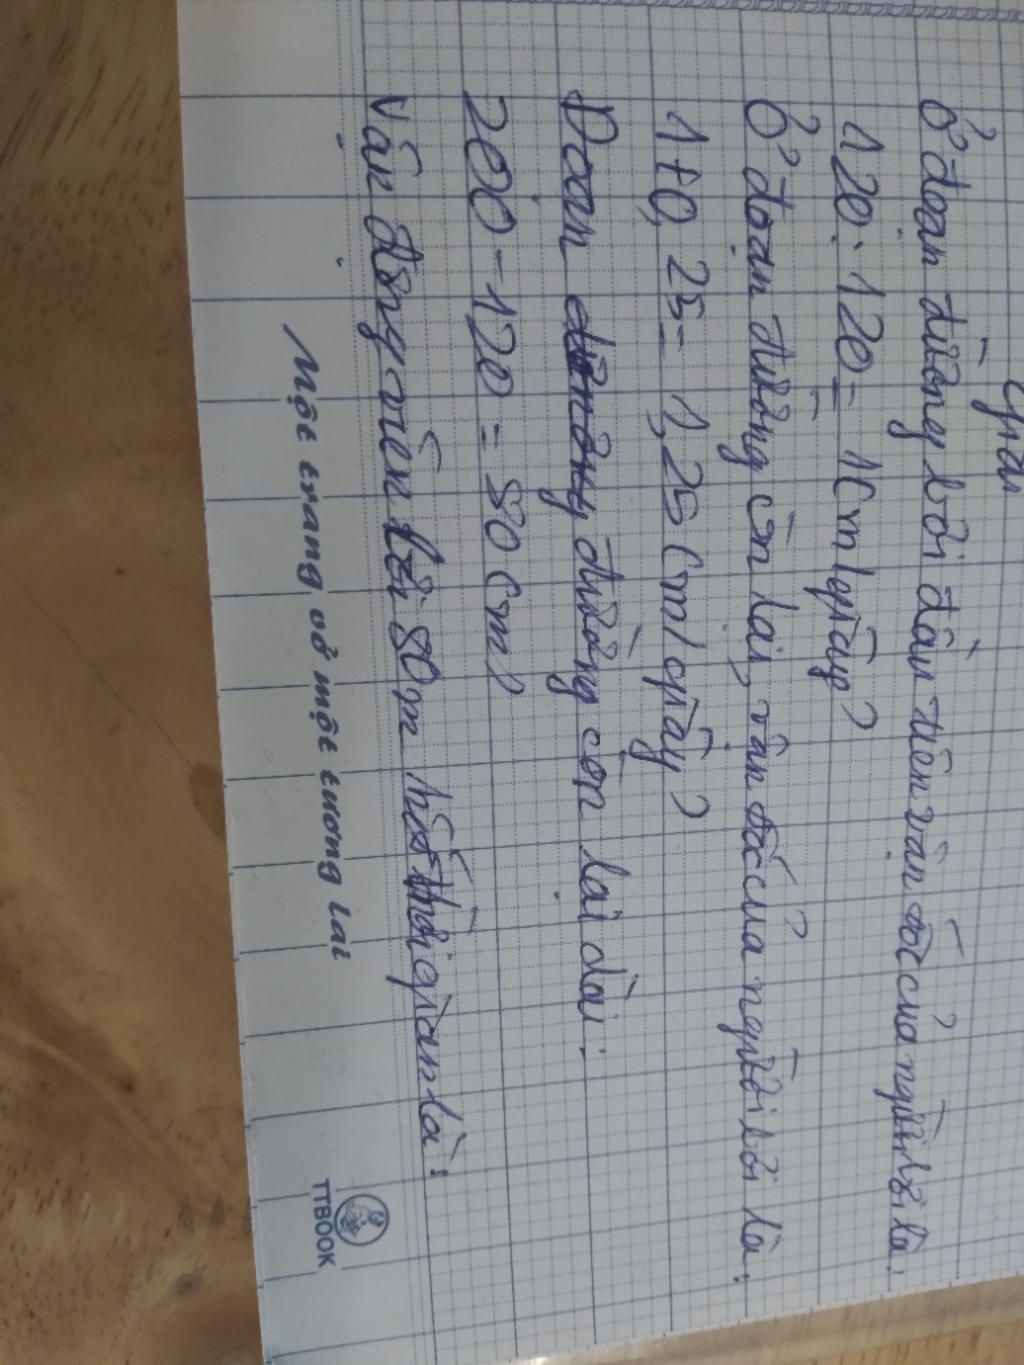 Giải
Ở đoạn đường bơi đầu tiên vận tốc của người bơi là:
120 : 120 = 1 (m/giây)
Ở đoạn đường còn lại, vận tốc của người bơi là:
1 + 0,25 = 1,25 (m/giây)
Đoạn đường còn lại dài:
200 - 120 = 80 (m)
Vận động viên bơi 80m hết thời gian là:
Một trang vở một tương lai
TTBOOK